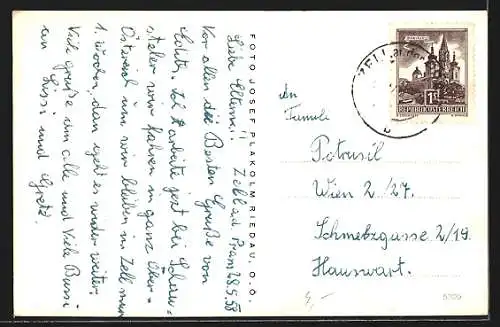 Zell ad Pram 28.5.58
Liebe Eltern!!
Vor allen die Besten Grüße von
Achti, Ich arbeite jetzt bei
wir fahren in ganz Ober-
Österreich um, wir bleiben in Zell nur
1. Wochen, dan geht es wieder weiter.
Viele grüße am alle und Viele Bussi
an Sissi und Gretl.
FOTO JOSEF PLAKOLM RIEDAU, O.Ö.
ZELL
MARIAZELL
1S
REPUBLIK ÖSTERREICH
An
Famili
Potrusil
Wien 2/27.
Schmelzgasse 2/19
Hauswart.
5,-
5309